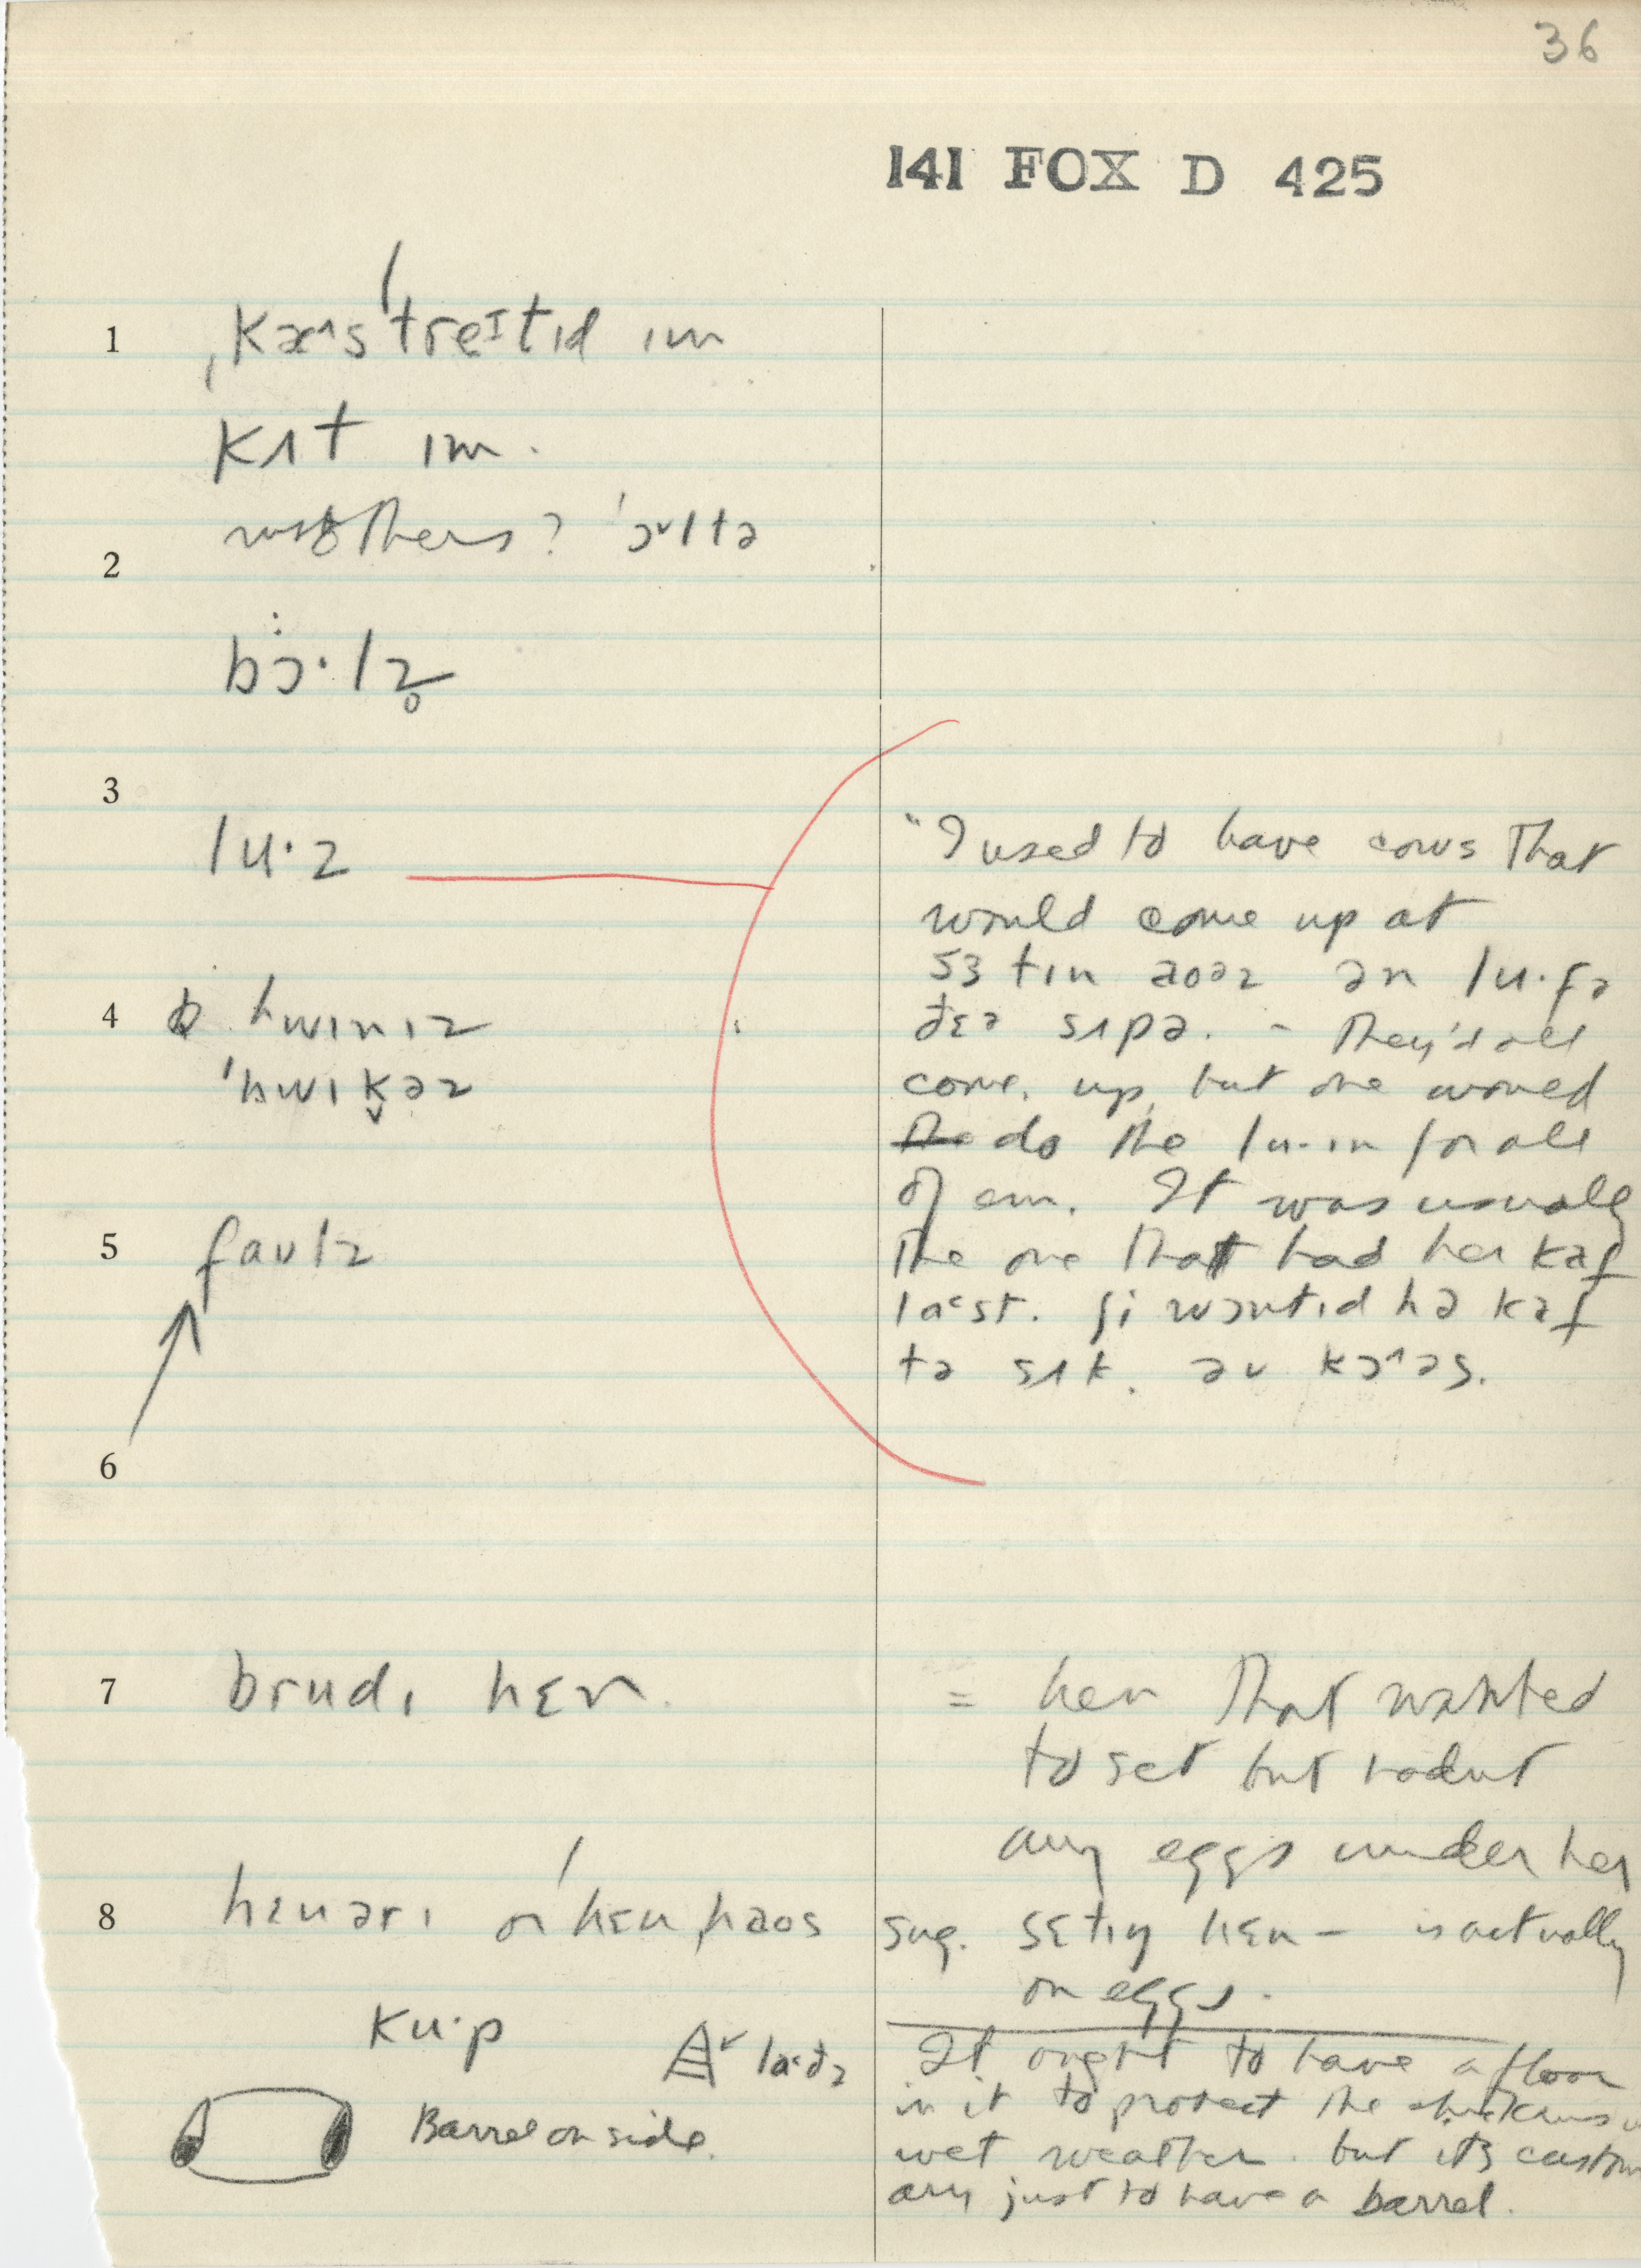 36
141 FOX D 425
1 ˌkæ˄sˈtreɪtɪd ɪm
kʌt ɪm.
? ˈɔ˅ltə
2
bɔ·lz̥
3
lu·z
4 hwɪnɪz
ˈhwɪk̬əz
5 faʊlz
6
7 brudɪ hɛn.
8 hɛnərɪ or ˈhɛnˌhaos
ku·p
laˁdz
Barrel on side.
"I used to have cows that
would come up at
sɜtɪn aoəz ən lu· fə
ðɛə sʌpə. – They'd all
come up, but one would
the do the lu·ɪn for all
of em. It was usually
the one that had her kaf
laˁst. ʃi wɔntɪd hə kaf
tə sʌk. əv kɔ˄əs.
= hen that wanted
to set but hadnt
any eggs under her
sug. sɛtɪŋ hɛn – is actually
on eggs.
It ought to have a floor
in it to protect the chickens
wet weather. but its custom
ary just to have a barrel.